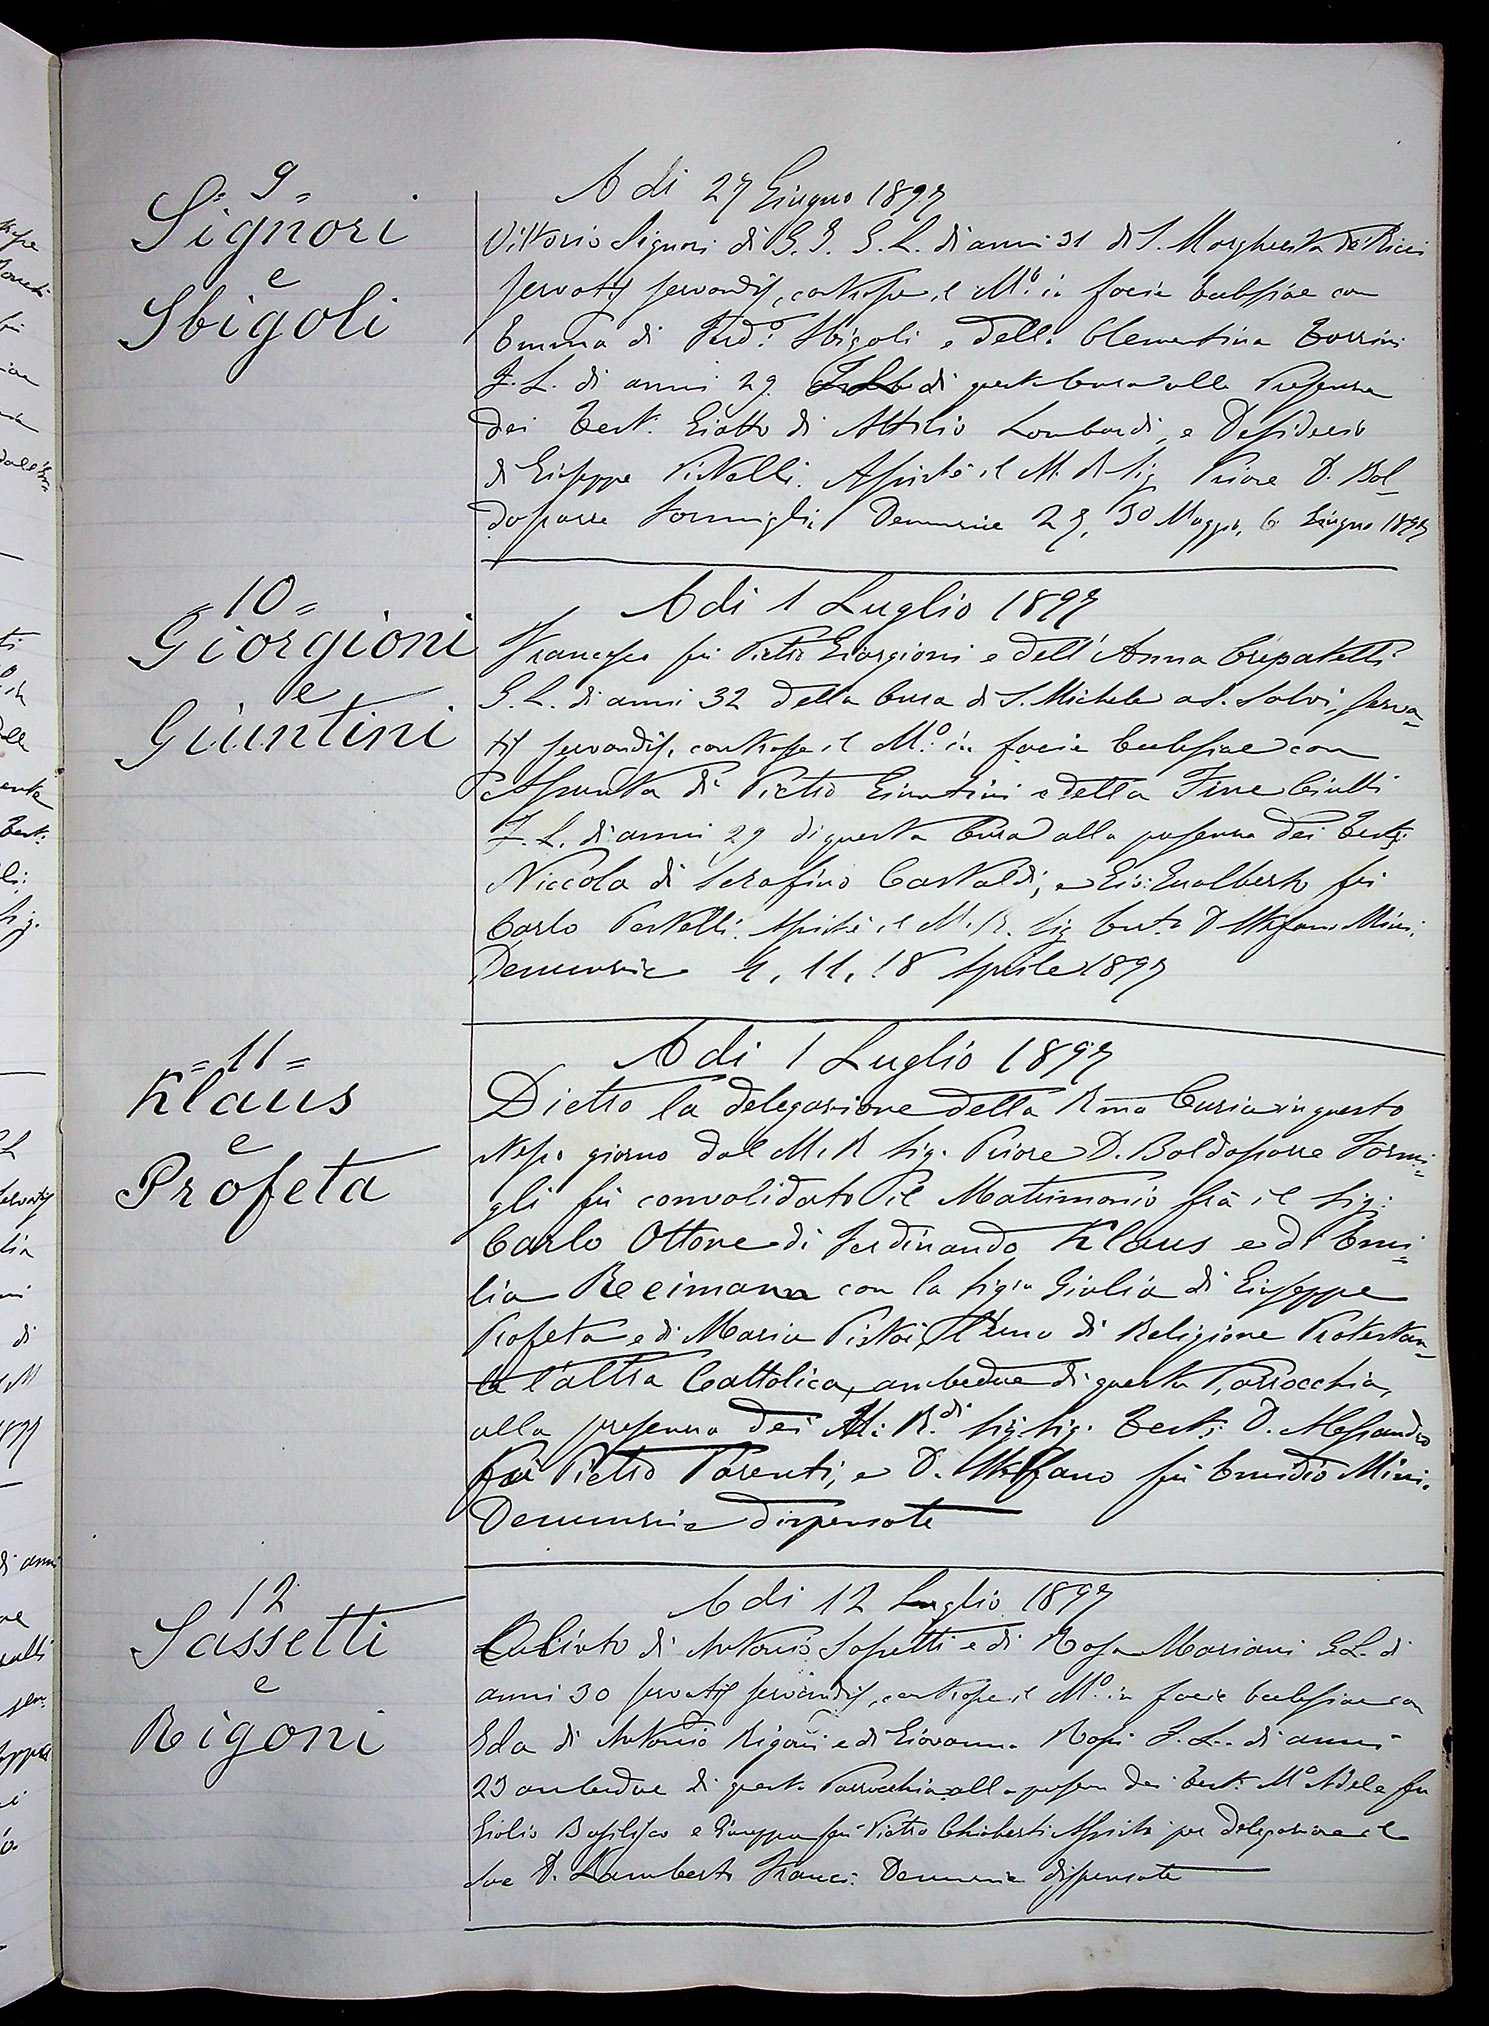 = 9 =
Signori
e
Sbigoli
A di 27 Giugno 1897
Vittorio Signori di G. G. G. L. di anni 31 di S. Margherita de' Ricci
servatis servandis, contrasse il M.º in facie Ecclesiae con
Emma di Ferd.º Sbigoli e della Clementina Torrini
F. L. di anni 29. di questa Cura alla presenza
dei Test. Giotto di Attilio Lombardi, e Desiderio
di Giuseppe Pistelli. Assistè il M. R. Sig. Priore D. Bal-
dassarre Formigli Denunzie 27, 30 Maggio, 6 Giugno 1897
= 10 =
Giorgioni
e
Giuntini
A di 1 Luglio 1897
Francesco fu Pietro Giorgioni e dell'Anna Crepatelli
G. L. di anni 32 della Cura di S. Michele a S. Salvi, serva=
tis servandis, contrasse il M.º in facie Ecclesiae con
Assunta di Pietro Giuntini e della Fine Ciulli
F. L. di anni 29 di questa Cura alla presenza dei Testi
Niccola di Serafino Castaldi, e Gio: Gualberto fu
Carlo Pestelli. Assistè il M. R. Sig. Cur.to D. Stefano Mini.
Denunzie 4, 11, 18 Aprile 1897
= 11 =
Klaus
e
Profeta
A di 1 Luglio 1897
Dietro la delegazione della Rma Curia in questo
stesso giorno dal M. R. Sig. Priore D. Baldassarre Formi=
gli fu convalidato il Matrimonio fra il Sig:
Carlo Ottone di Ferdinando Klaus e di Emi=
lia Reeimann con la Sig.ra Giulia di Giuseppe
Profeta e di Maria Pistoi, l'uno di Religione Protestan=
te l'altra Cattolica, ambedue di questa Parrocchia,
alla presenza dei M: R.di Sig: Sig: Testi: D. Alessandro
fu Pietro Parenti, e D. Stefano fu Emidio Mini.
Denunzie dispensate
12
Sassetti
e
Rigoni
A di 12 Luglio 1897
di Antonio Sassetti e di Rosa Mariani G. L. di
anni 30 servatis servandis, contrasse il M.º in facie Ecclesiae con
Ida di Antonio Rigoni e di Giovanna Rossi F. L. di anni
23 ambedue di questa Parrocchia alla presenza dei Test: M.º Adele fu
Giulio Basilisco e Giuseppe fu Pietro Chioberti Assistè per delegazione il
Sac D. Lamberto Franci: Denunzie dispensate